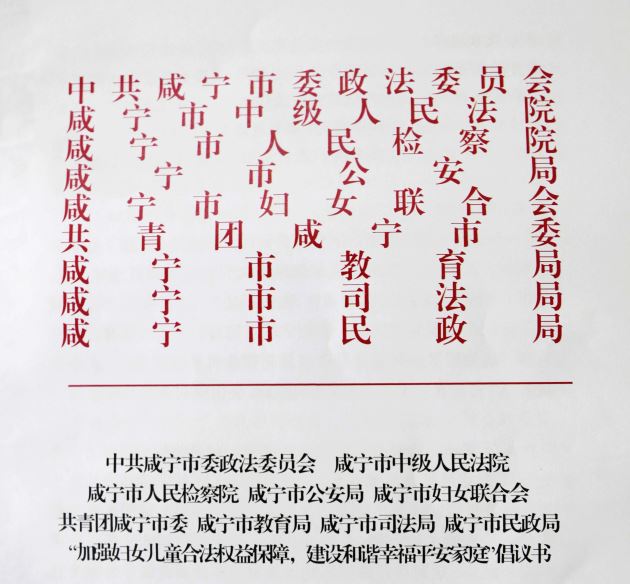 中共咸宁市委政法委员会
咸宁市中级人民法院
咸宁市人民检察院
咸宁市公安局
咸宁市妇女联合会
共青团咸宁市委
咸宁市教育局
咸宁市司法局
咸宁市民政局
中共咸宁市委政法委员会 咸宁市中级人民法院
咸宁市人民检察院 咸宁市公安局 咸宁市妇女联合会
共青团咸宁市委 咸宁市教育局 咸宁市司法局 咸宁市民政局
“加强妇女儿童合法权益保障，建设和谐幸福平安家庭”倡议书